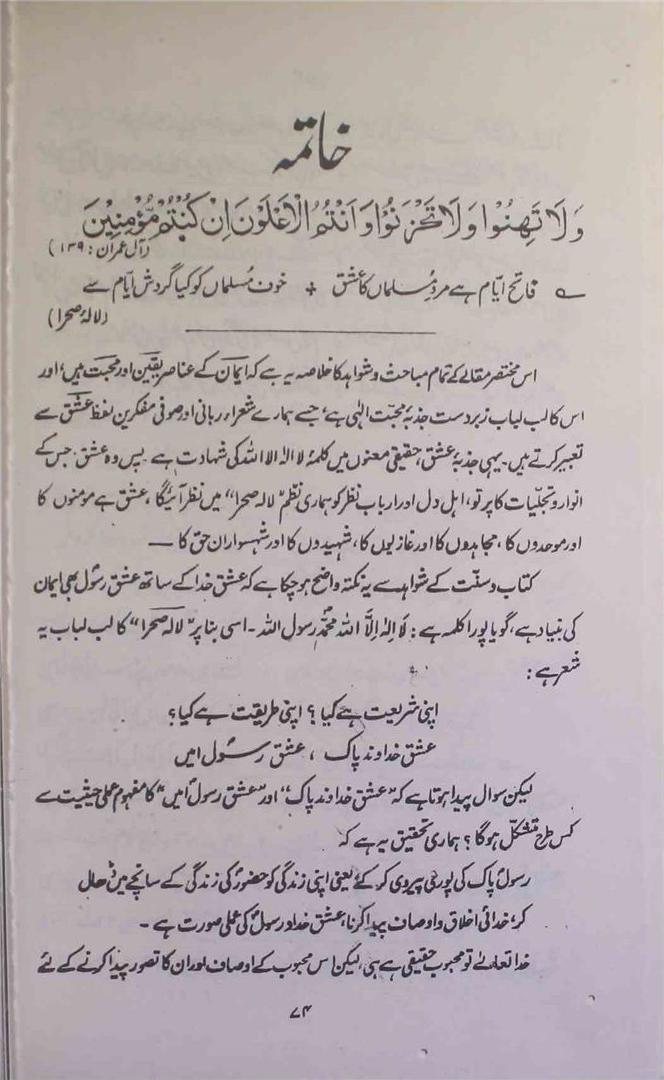 خاتمہ
وَلَا تَهِنُوْا وَلَا تَحْزَنُوْا وَاَنْتُمُ الْاَعْلَوْنَ اِنْ كُنْتُمْ مُّؤْمِنِيْنَ
(آل عمران: ۱۳۹)
؎ فاتح ایّام ہے مردِ مُسلماں کا عشق + خون مُسلماں کو کیا گردش ایّام سے
(لالۂ صحرا)
اس مختصر مقالے کے تمام مباحث و شواہد کا خلاصہ یہ ہے کہ ایمان کے عناصر یقین اور محبت ہیں، اور
اس کا لب لباب زبردست جذبۂ محبّت الٰہی ہے، جسے ہمارے شعراء ربانی اور صوفی مفکرین لفظ عشق سے
تعبیر کرتے ہیں۔ یہی جذبۂ عشق، حقیقی معنوں میں کلمۂ لا الٰہ الا اللہ کی شہادت ہے۔ بس وہ عشق جس کے
انوار و تجلّیات کا پرتو، اہل دل اور ارباب نظر کو ہماری نظم "لالہ صحرا" میں نظر آئیگا، عشق ہے مومنوں کا
اور موحدوں کا، مجاہدوں کا اور غازیوں کا، شہیدوں کا اور شہسواران حق کا —
کتاب و سنّت کے شواہد سے یہ نکتہ واضح ہو چکا ہے کہ عشق خدا کے ساتھ عشق رسولؐ بھی ایمان
کی بنیاد ہے، گویا پورا کلمہ ہے: لَا اِلٰہَ اِلَّا اللہ محمّدؐ رسول اللہ۔ اسی بنا پر "لالہ صحرا" کا لب لباب یہ
شعر ہے:
اپنی شریعت ہے کیا؟ اپنی طریقت ہے کیا؟
عشق خداوند پاک، عشق رسُولؐ امیں
لیکن سوال پیدا ہوتا ہے کہ "عشق خداوند پاک" اور "عشق رسولؐ امیں" کا مفہوم عملی حیثیت سے
کس طرح متشکّل ہوگا؟ ہماری تحقیق یہ ہے کہ
رسولؐ پاک کی پوری پیروی کر کے یعنی اپنی زندگی کو حضورؐ کی زندگی کے سانچے میں ڈھال
کر، خدائی اخلاق و اوصاف پیدا کرنا، عشق خدا و رسولؐ کی عملی صورت ہے۔
خدا تعالےٰ تو محبوب حقیقی ہے ہی، لیکن اس محبوب کے اوصاف اور ان کا تصور پیدا کرنے کے لئے
۷۴